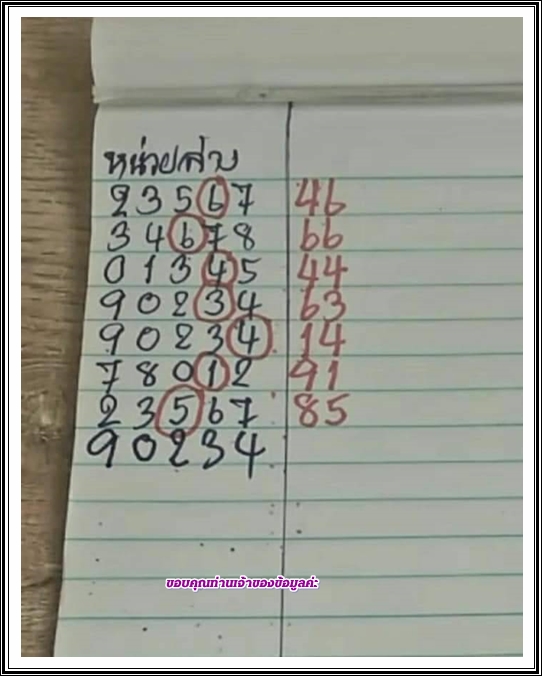 หน่วยล่าง
23567 46
34678 66
01345 44
90234 63
90234 14
78012 91
23567 85
90234
ขอบคุณท่านเจ้าของข้อมูลค่ะ